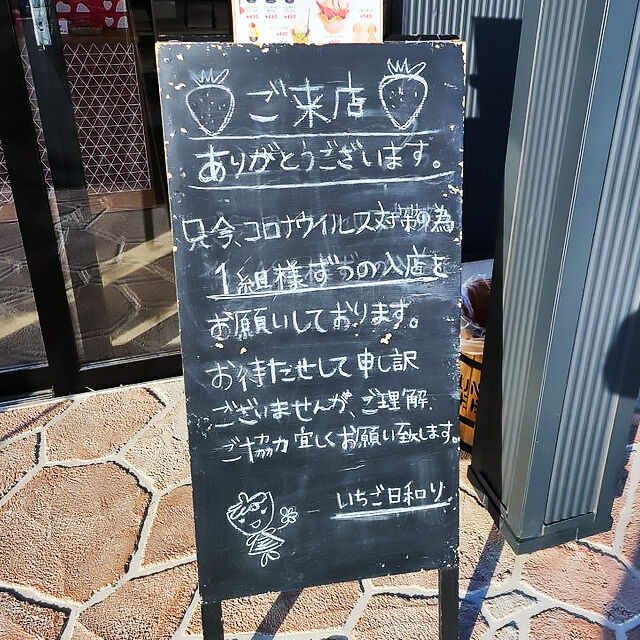 ご来店
ありがとうございます。
只今、コロナウイルス対策の為
1組様ずつの入店を
お願いしております。
お待たせして申し訳
ございませんが、ご理解、
ご協力宜しくお願い致します。
いちご日和り